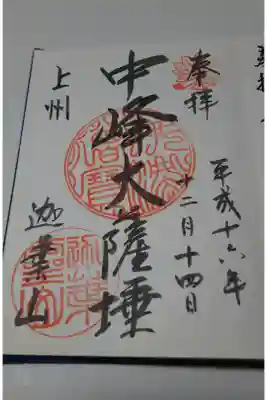 奉拝
平成十六年
十二月十四日
中峰大薩埵
上州
迦葉山